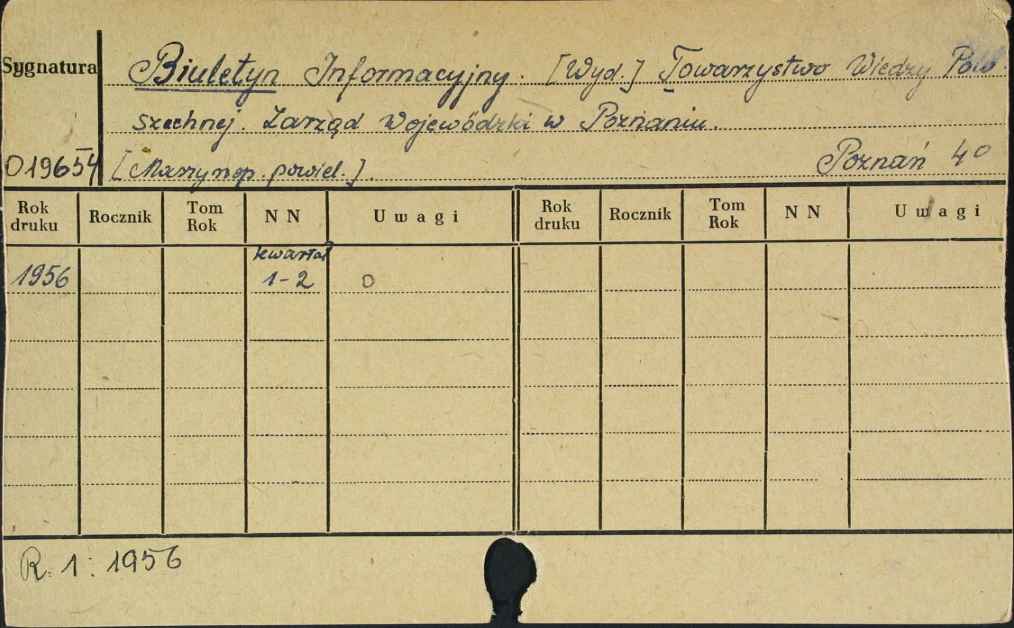 Sygnatura
Biuletyn Informacyjny. [Wyd.] Towarzystwo Wiedzy Pow-
szechnej. Zarząd Wojewódzki w Poznaniu.
019654 [Maszynop. powiel.]. Poznań 4°
Rok druku Rocznik Tom Rok NN Uwagi Rok druku Rocznik Tom Rok NN Uwagi
kwartał
1956 1-2 0
R. 1: 1956